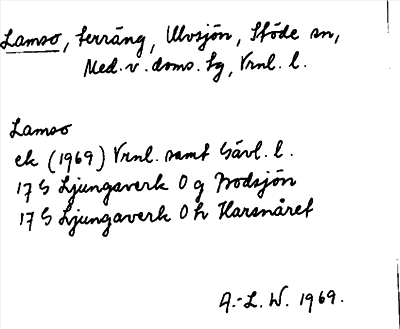 Lamso, terräng, Ulvsjön, Stöde sn,
Med. v. doms. tg, Vrnl. l.
Lamso
ek (1969) Vrnl. samt Gävl. l.
17 G Ljungaverk 0 g Brodsjön
17 G Ljungaverk 0 h Harsnåret
A.-L. W. 1969.